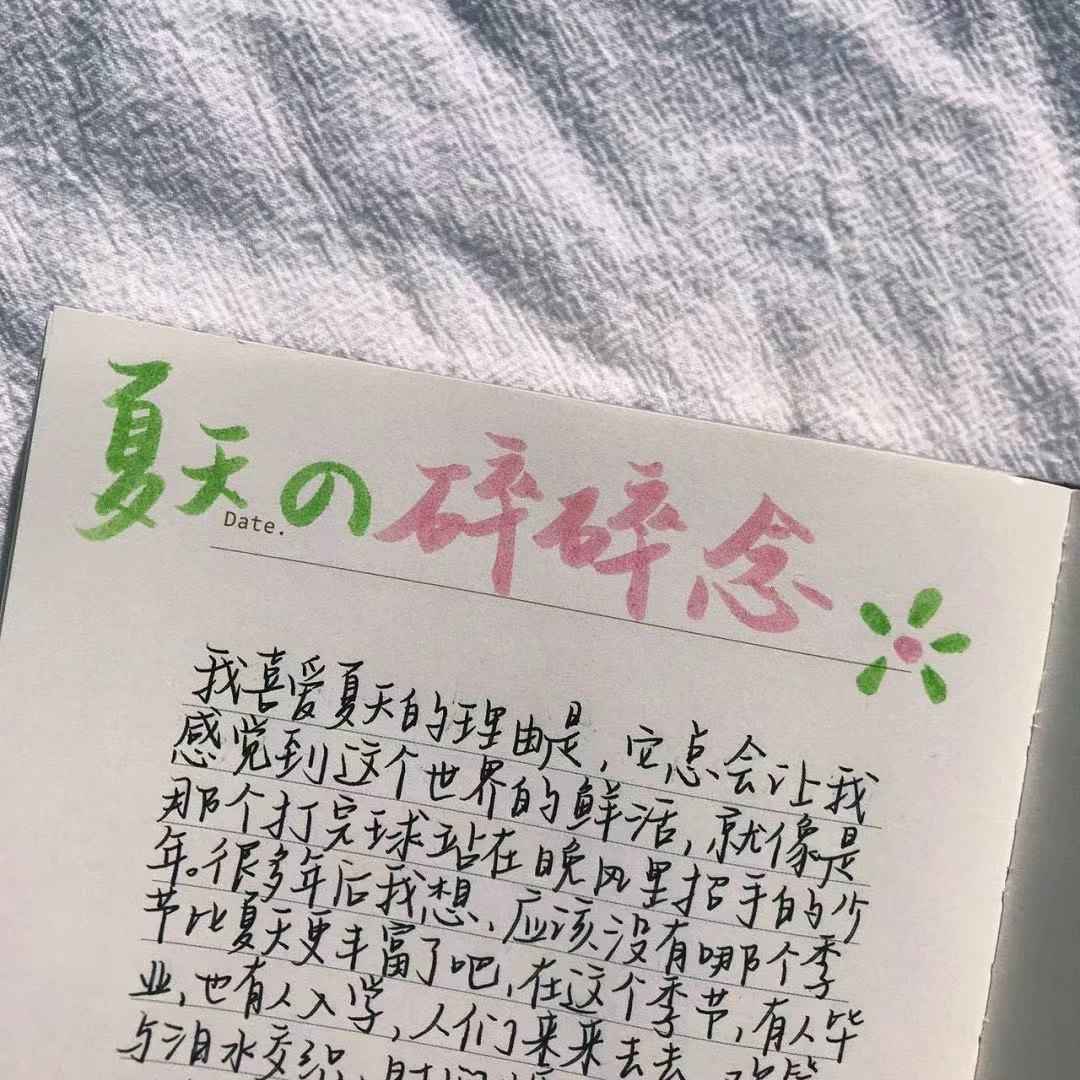 夏天の碎碎念
Date.
我喜爱夏天的理由是，它总会让我
感觉到这个世界的鲜活，就像是
那个打完球站在晚风里招手的少
年。很多年后我想，应该没有哪个季
节比夏天更丰富了吧，在这个季节，有人毕
业，也有人入学，人们来来去去，欢笑
与泪水交织，时间